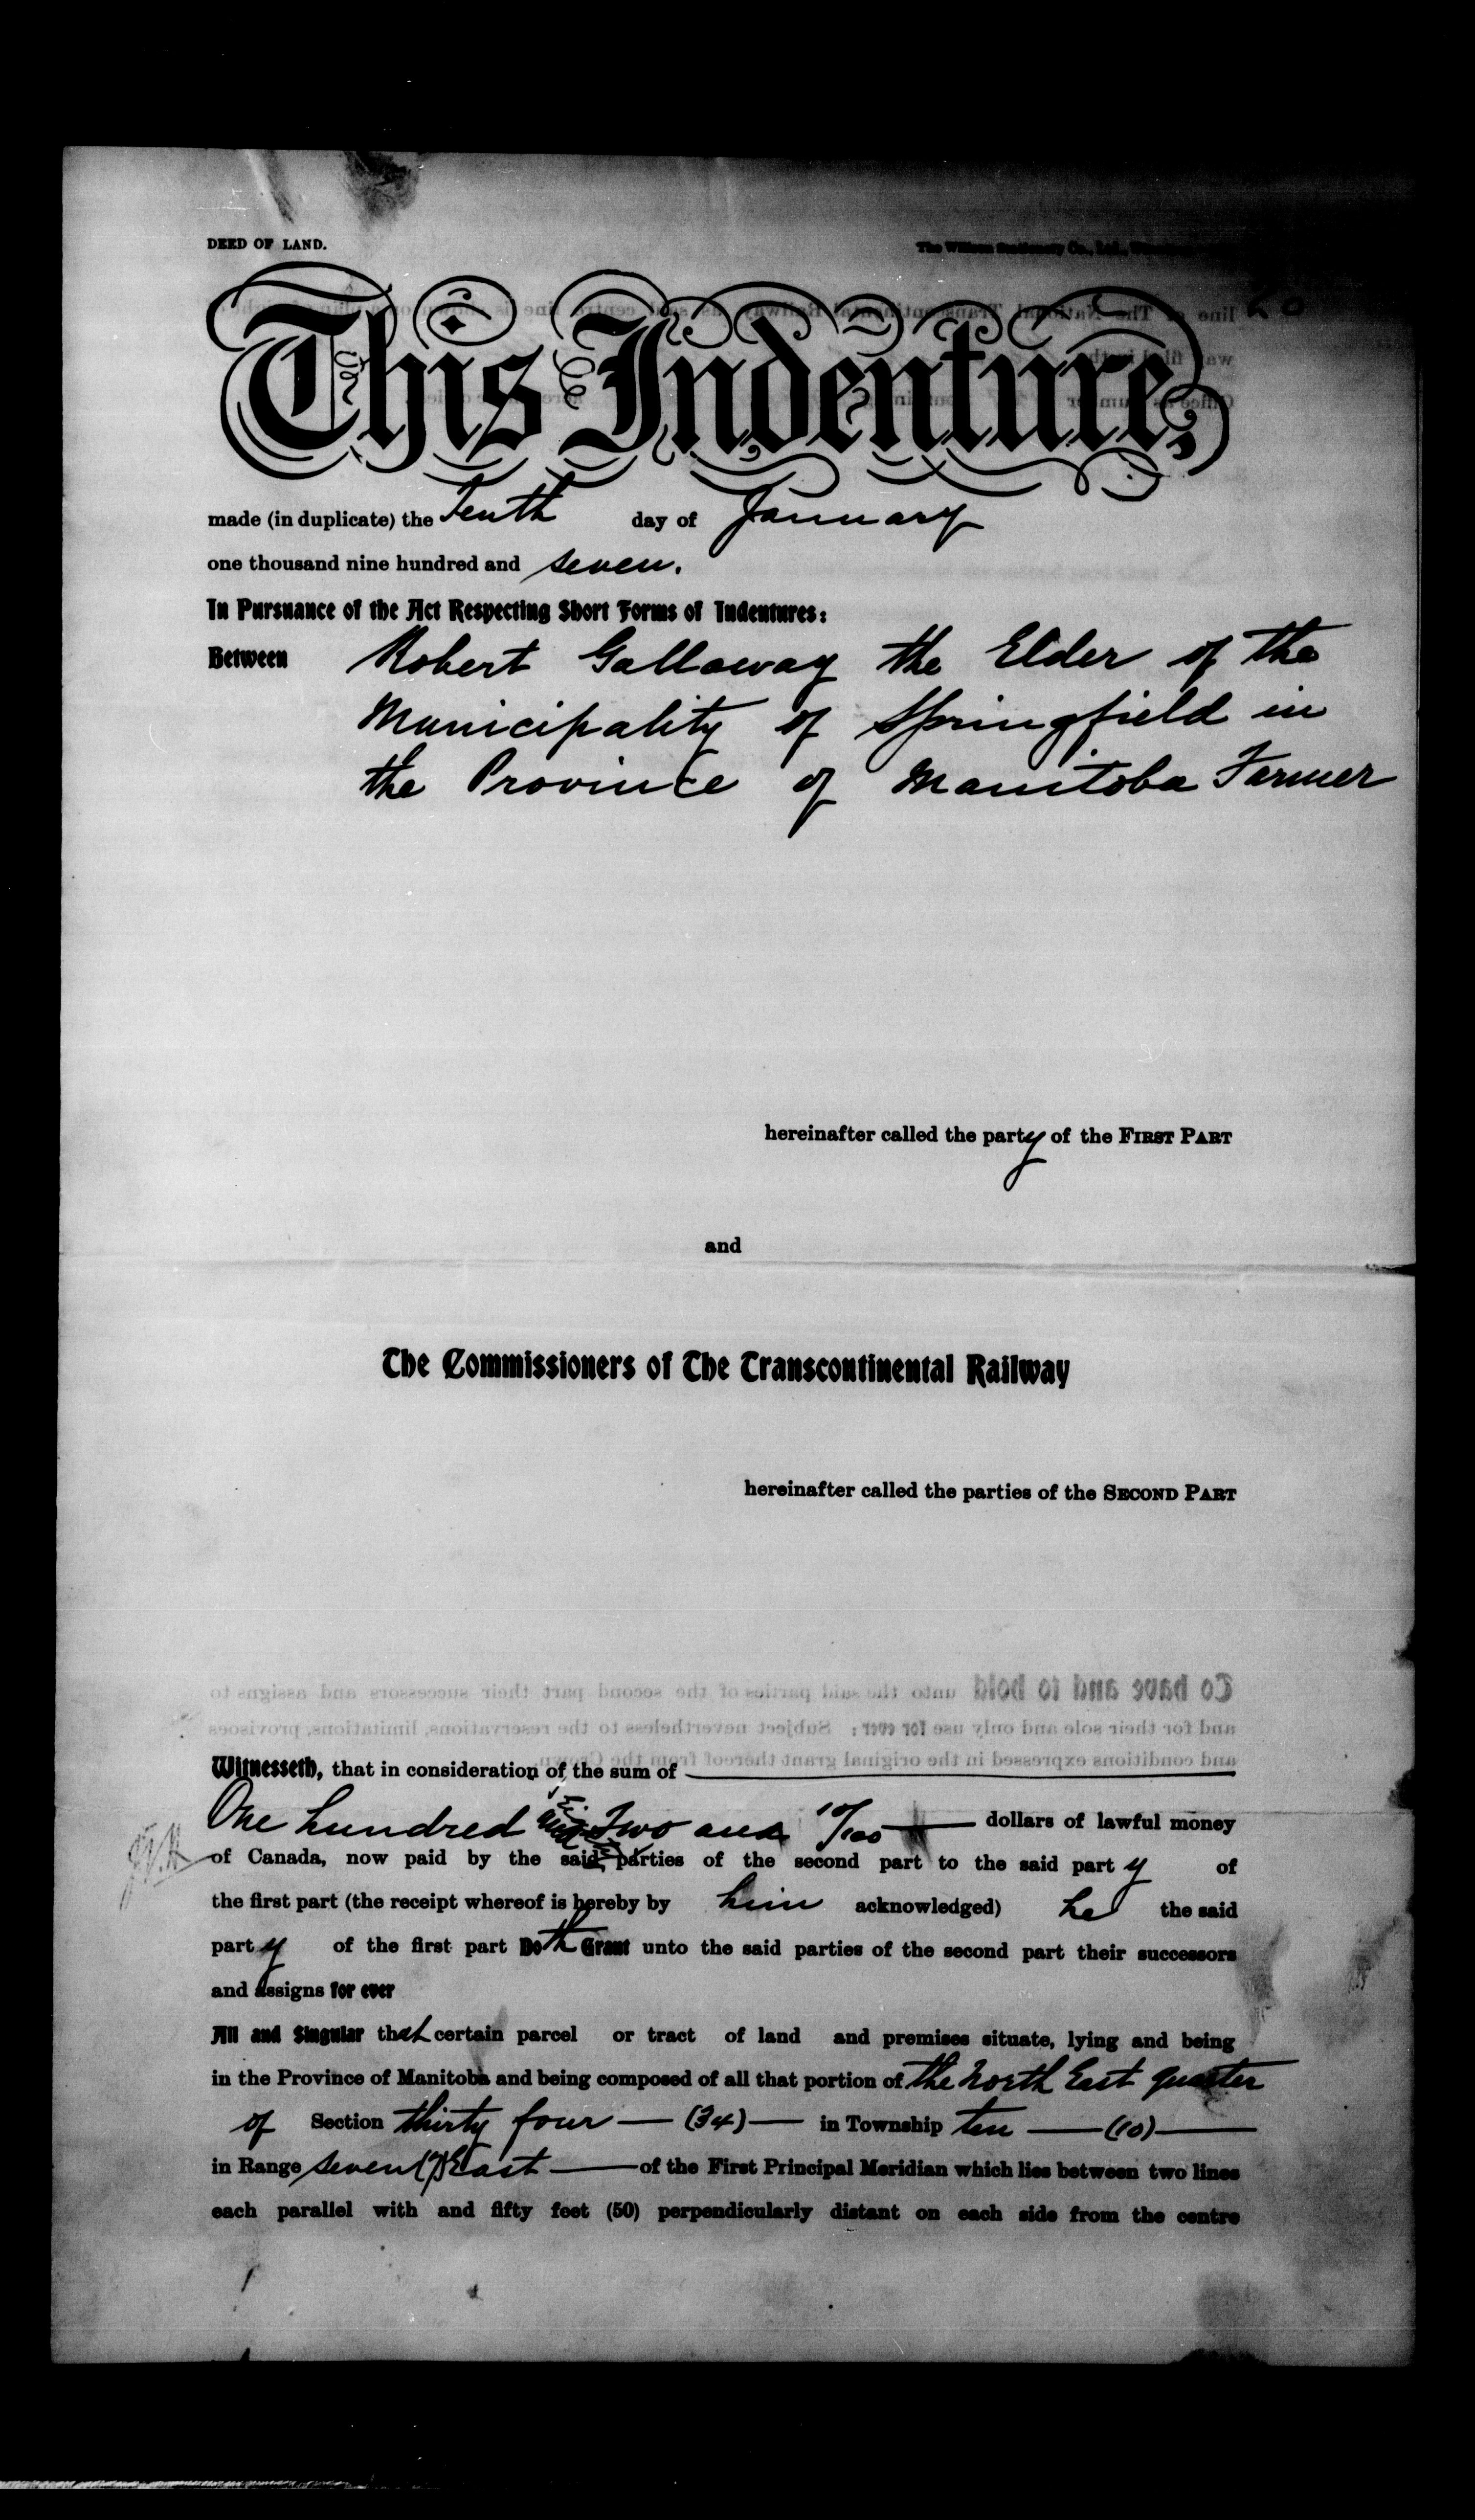 DEED OF LAND.
The Willson Stationery Co., Ltd.,
This Indenture,
made (in duplicate) the Tenth day of January
one thousand nine hundred and seven.
In Pursuance of the Act Respecting Short Forms of Indentures:
Between Robert Gallaway the Elder of the
Municipality of Springfield in
the Province of Manitoba Farmer
hereinafter called the party of the FIRST PART
and
The Commissioners of The Transcontinental Railway
hereinafter called the parties of the SECOND PART
To have and to hold unto the said parties of the second part their successors and assigns to
and for their sole and only use for ever: Subject nevertheless to the reservations, limitations, provisoes
and conditions expressed in the original grant thereof from the Crown.
Witnesseth, that in consideration of the sum of
One hundred Two and 10/100 dollars of lawful money
of Canada, now paid by the said parties of the second part to the said party of
the first part (the receipt whereof is hereby by him acknowledged) he the said
party of the first part Doth Grant unto the said parties of the second part their successors
and assigns for ever
All and Singular that certain parcel or tract of land and premises situate, lying and being
in the Province of Manitoba and being composed of all that portion of the North East quarter
of Section thirty four — (34) — in Township ten — (10) —
in Range seven (7) East — of the First Principal Meridian which lies between two lines
each parallel with and fifty feet (50) perpendicularly distant on each side from the centre